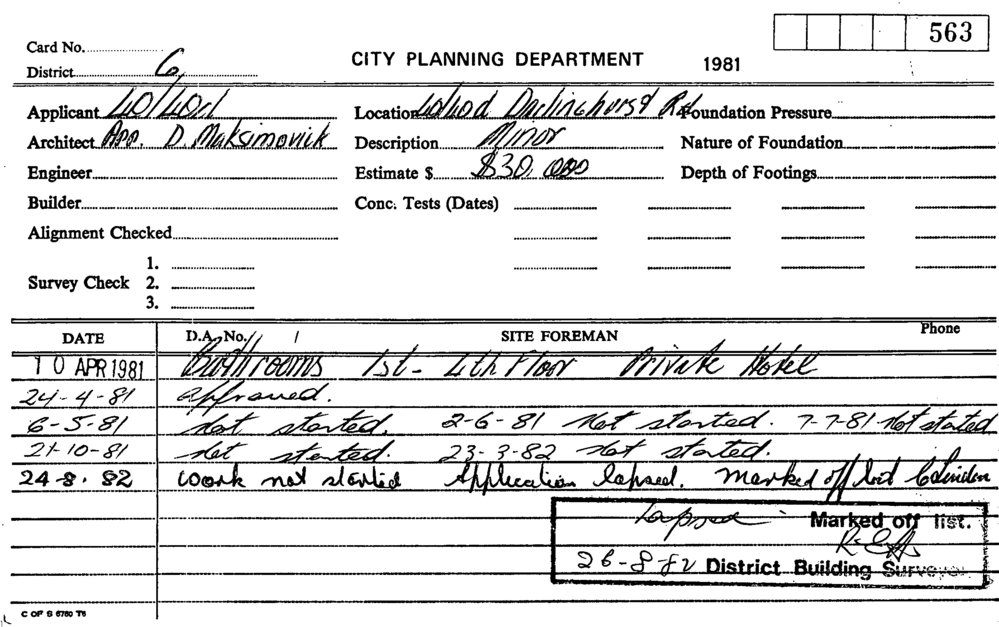 563
Card No.
CITY PLANNING DEPARTMENT 1981
District 6
Applicant 40/40d Location 40/40d Darlinghurst Rd Foundation Pressure
Architect App. D. Maksimovick Description Minor Nature of Foundation
Engineer Estimate $ $30,000 Depth of Footings
Builder Conc. Tests (Dates)
Alignment Checked
1.
Survey Check 2.
3.
DATE D.A. No. SITE FOREMAN Phone
10 APR 1981 Bathrooms 1st - 4th Floor Private Hotel
24-4-81 approved.
6-5-81 Not started. 2-6-81 Not started. 7-7-81 Not started
21-10-81 Not started. 23-3-82 Not started.
24-8-82 work not started Application lapsed. Marked off list
Lapsed Marked off list.
26-8-82 District Building Surveyor
C OF S 6760 T6